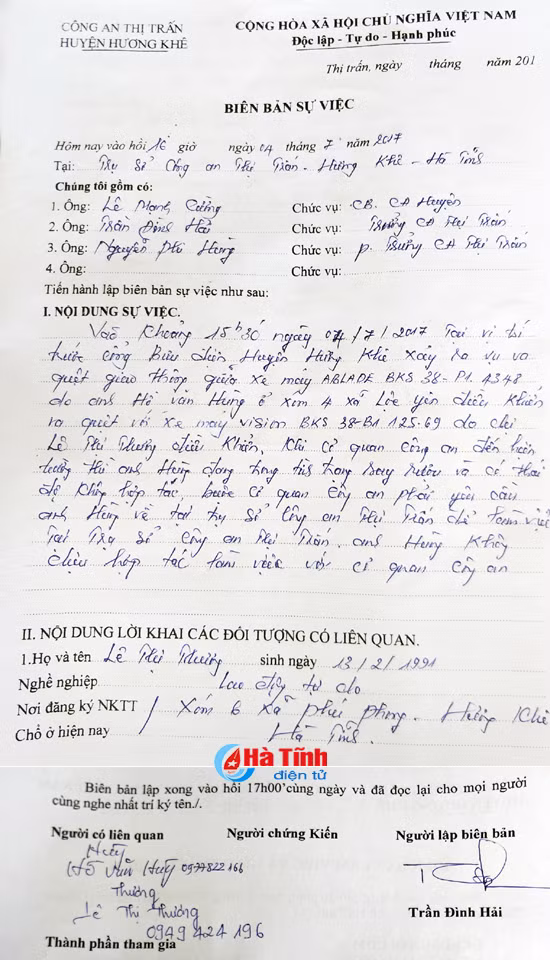 CÔNG AN THỊ TRẤN
HUYỆN HƯƠNG KHÊ
CỘNG HÒA XÃ HỘI CHỦ NGHĨA VIỆT NAM
Độc lập - Tự do - Hạnh phúc
Thị trấn, ngày tháng năm 201
BIÊN BẢN SỰ VIỆC
Hôm nay vào hồi 16 giờ ngày 04 tháng 7 năm 2017
Tại: Trụ Sở Công an Thị Trấn - Hương Khê - Hà Tĩnh
Chúng tôi gồm có:
1. Ông: Lê Mạnh Cường Chức vụ: CB. CA Huyện
2. Ông: Trần Đình Hải Chức vụ: Trưởng CA Thị Trấn
3. Ông: Nguyễn Phi Hùng Chức vụ: P. Trưởng CA Thị Trấn
4. Ông: Chức vụ:
Tiến hành lập biên bản sự việc như sau:
I. NỘI DUNG SỰ VIỆC.
Vào khoảng 15h30 ngày 04/7/2017 Tại vị trí
trước cổng Bưu điện Huyện Hương Khê xảy ra vụ va
quệt giao thông giữa xe máy ABLADE BKS 38-P1. 4348
do anh Hồ Văn Hùng ở xóm 4 xã Lộc Yên điều khiển
va quệt với xe máy vision BKS 38-B1 125.69 do chị
Lê Thị Thương điều khiển. Khi cơ quan công an đến hiện
trường thì anh Hùng đang trong tình trạng say rượu và có thái
độ không hợp tác, buộc cơ quan công an phải yêu cầu
anh Hùng về tại trụ sở Công an Thị Trấn để làm việc
Tại Trụ Sở Công an Thị Trấn. anh Hùng không
chịu hợp tác làm việc với cơ quan công an
II. NỘI DUNG LỜI KHAI CÁC ĐỐI TƯỢNG CÓ LIÊN QUAN.
1.Họ và tên Lê Thị Thương sinh ngày 13/2/1991
Nghề nghiệp Lao động tự do
Nơi đăng ký NKTT / Xóm 6 xã Phú Phong. Hương Khê
Chổ ở hiện nay Hà Tĩnh.
Hà Tĩnh
điện tử
Biên bản lập xong vào hồi 17h00'cùng ngày và đã đọc lại cho mọi người
cùng nghe nhất trí ký tên./.
Người có liên quan Người chứng Kiến Người lập biên bản
Hồ Văn 0977822166
Thương
Lê Thị Thương
0949 424 196
Trần Đình Hải
Thành phần tham gia